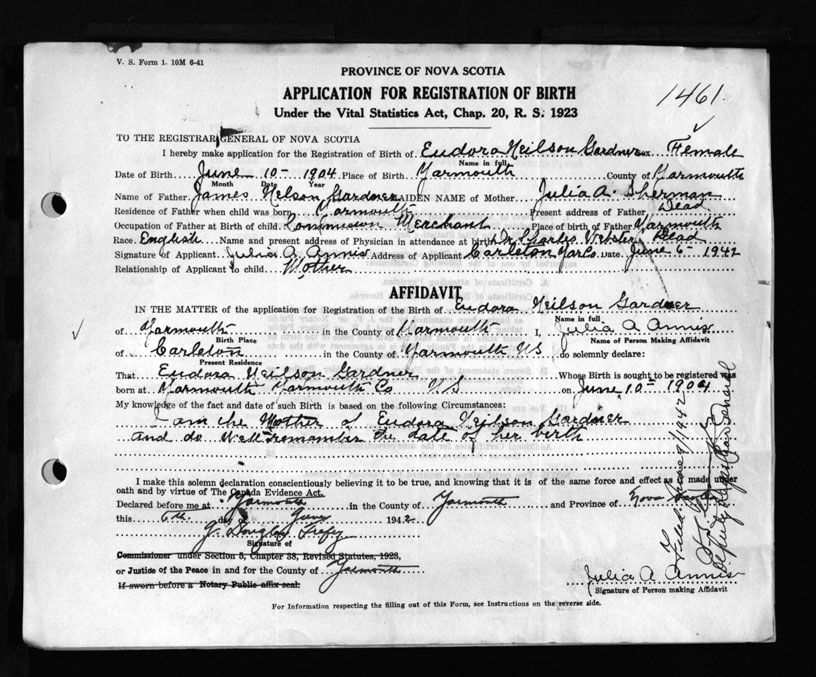 V. S. Form 1. 10M 6-41
PROVINCE OF NOVA SCOTIA
APPLICATION FOR REGISTRATION OF BIRTH
1461.
Under the Vital Statistics Act, Chap. 20, R. S. 1923
TO THE REGISTRAR GENERAL OF NOVA SCOTIA
I hereby make application for the Registration of Birth of Eudora Neilson Gardner sex Female
Name in full
Date of Birth June 10 - 1904 Place of Birth Yarmouth County of Yarmouth
Month Date Year
Name of Father James Nelson Gardner MAIDEN NAME of Mother Julia A. Sherman
Residence of Father when child was born Yarmouth Present address of Father Dead
Occupation of Father at Birth of child Commission Merchant Place of birth of Father Yarmouth
Race English Name and present address of Physician in attendance at birth Dr Charles Webster Dead
Signature of Applicant Julia A. Annis Address of Applicant Carleton Yar Co. Date June 6 - 1942
Relationship of Applicant to child Mother
AFFIDAVIT
IN THE MATTER of the application for Registration of the Birth of Eudora Neilson Gardner
Name in full
of Yarmouth in the County of Yarmouth I, Julia A Annis
Birth Place Name of Person Making Affidavit
of Carleton in the County of Yarmouth NS do solemnly declare:
Present Residence
That Eudora Neilson Gardner Whose Birth is sought to be registered was
born at Yarmouth Yarmouth Co NS on June 10 - 1904
My knowledge of the fact and date of such Birth is based on the following Circumstances:
I am the Mother of Eudora Neilson Gardner
and do well remember the date of her birth
And I make this solemn declaration conscientiously believing it to be true, and knowing that it is of the same force and effect as if made under
oath and by virtue of The Canada Evidence Act.
Declared before me at Yarmouth in the County of Yarmouth and Province of Nova Scotia
this 6th day of June 1942
J. Douglas Trefry
Signature of
Commissioner under Section 5, Chapter 38, Revised Statutes, 1923,
or Justice of the Peace in and for the County of Yarmouth
If sworn before a Notary Public affix seal.
Julia A Annis
Signature of Person making Affidavit
For Information respecting the filling out of this Form, see Instructions on the reverse side.
Filed June 9/1942
Deputy Registrar General